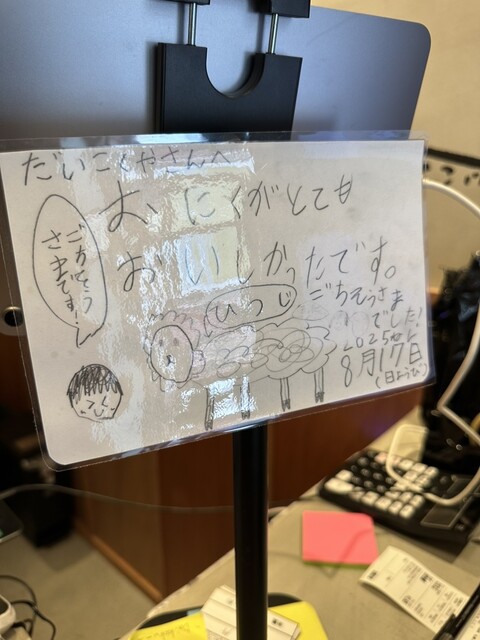 だいこくやさんへ
おにくがとても
おいしかったです。
ごちそう
さまです!
ひつじ
ごちそうさま
でした!
2025ねん
8月17日
(日ようび)